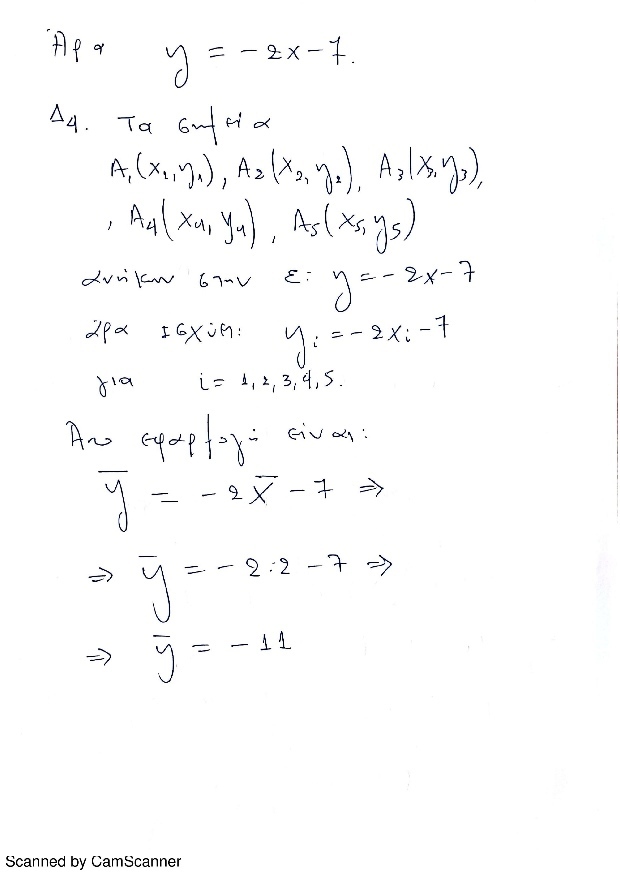 Άρα y = -2x-7.
Δ4. Τα σημεία
A₁(x₁,y₁), A₂(x₂,y₂), A₃(x₃,y₃),
, A₄(x₄,y₄), A₅(x₅,y₅)
ανήκουν στην ε: y=-2x-7
άρα ισχύει: yᵢ=-2xᵢ-7
για i= 1,2,3,4,5.
Από εφαρμογή είναι:
ȳ = -2x̄ -7 ⇒
⇒ ȳ = -2·2 -7 ⇒
⇒ ȳ = -11
Scanned by CamScanner